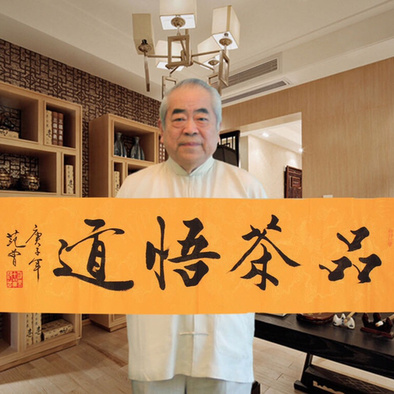 品茶悟道
庚子年
范曾